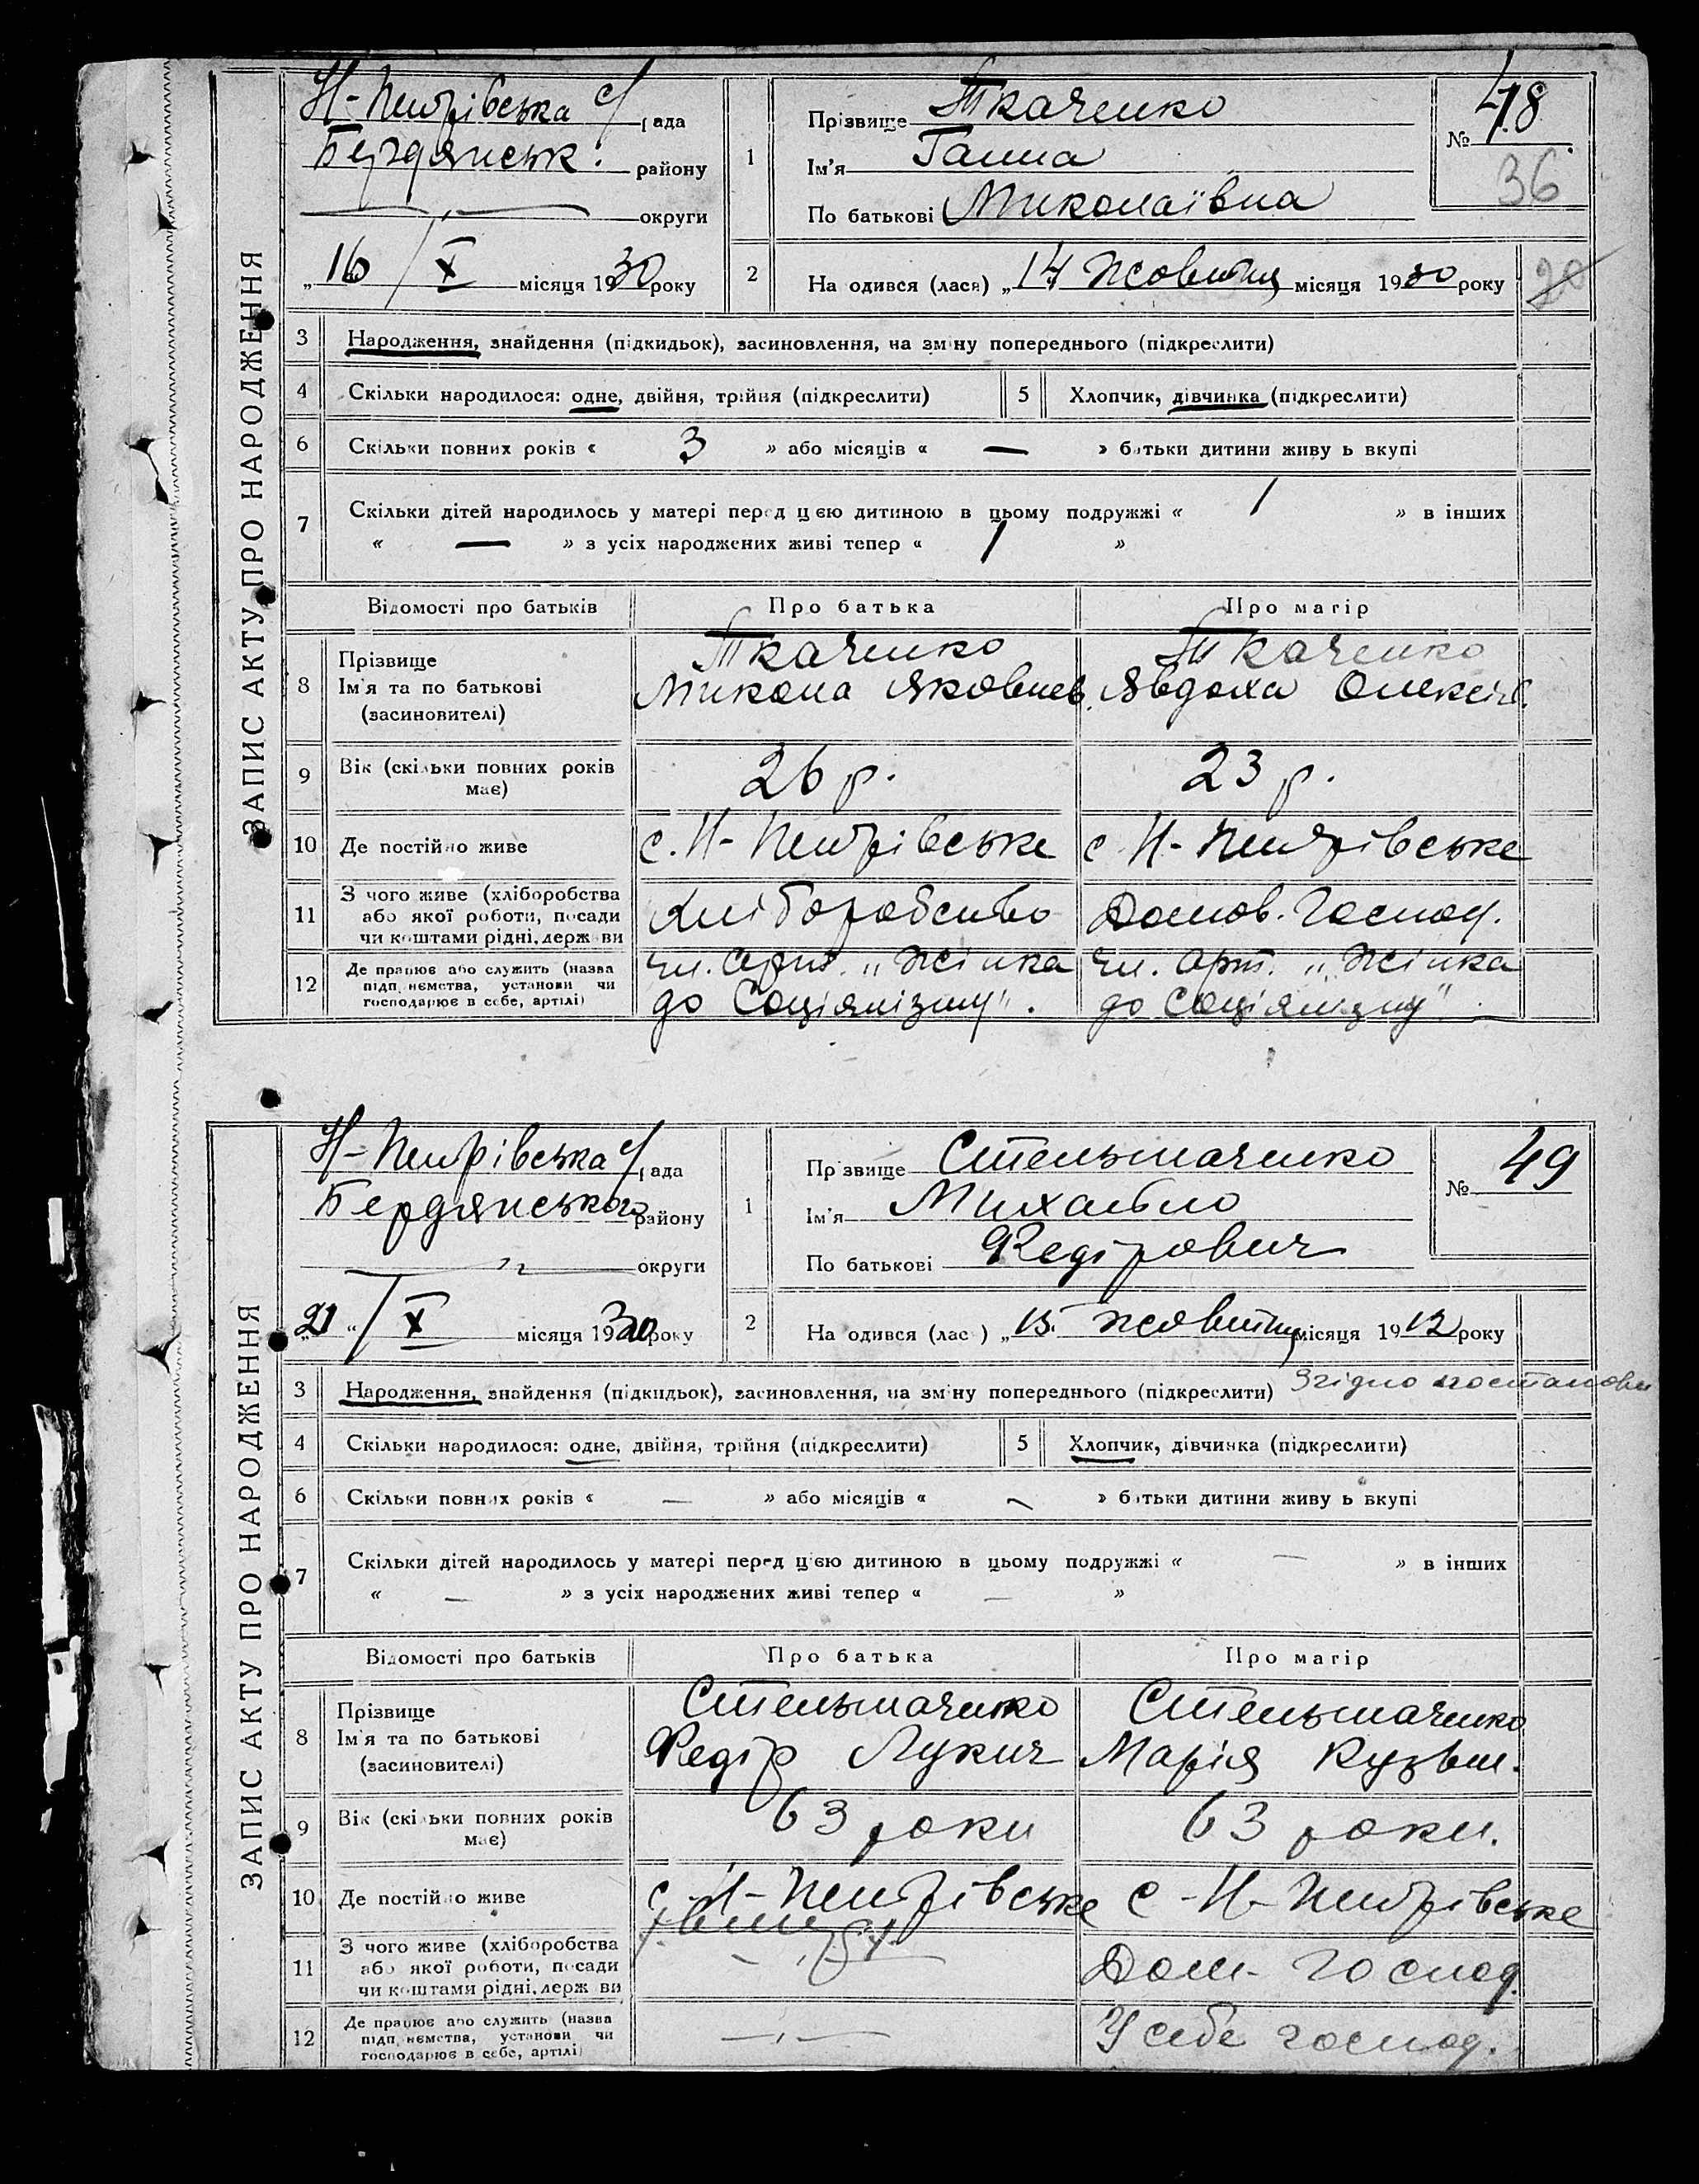 ЗАПИС АКТУ ПРО НАРОДЖЕННЯ
Н-Петрівська с/рада
Бердянськ. району
округи
„16 / X місяця 1930 року
1
Прізвище Ткаченко
Ім'я Ганна
По батькові Миколаївна
№ 48
36
2 На одився (лася) „14 жовтня місяця 1930 року
20
3 Народження, знайдення (підкидьок), засиновлення, на зміну попереднього (підкреслити)
4 Скільки народилося: одне, двійня, трійня (підкреслити) 5 Хлопчик, дівчинка (підкреслити)
6 Скільки повних років « 3 » або місяців « — » батьки дитини живу ь вкупі
7 Скільки дітей народилось у матері перед цією дитиною в цьому подружжі « 1 » в інших
« — » з усіх народжених живі тепер « 1 »
Відомості про батьків Про батька Про матір
8 Прізвище Ткаченко Ткаченко
Ім'я та по батькові Микола Яковлев. Явдоха Олексіїв.
(засиновителі)
9 Вік (скільки повних років має) 26 р. 23 р.
10 Де постійно живе с. Н-Петрівське с Н-Петрівське
11 З чого живе (хліборобства
або якої роботи, посади Хліборобство Домов. Господ.
чи коштами рідні, держ ви
12 Де працює або служить (назва чл. арт. „Жінка чл. арт. „Жінка
підп иємства, установи чи до Соціялізму". до Соціялізму"
господарює в себе, артілі)
ЗАПИС АКТУ ПРО НАРОДЖЕННЯ
Н-Петрівська с/рада
Бердянського району
округи
„21" / X місяця 1930 року
1
Прізвище Стельмаченко
Ім'я Михайло
По батькові Федірович
№ 49
2 На одився (лас ) „15. жовтня місяця 1912 року
3 Народження, знайдення (підкидьок), засиновлення, на зміну попереднього (підкреслити) Згідно постанови
4 Скільки народилося: одне, двійня, трійня (підкреслити) 5 Хлопчик, дівчинка (підкреслити)
6 Скільки повних років « — » або місяців « — » батьки дитини живу ь вкупі
7 Скільки дітей народилось у матері перед цією дитиною в цьому подружжі « — » в інших
« — » з усіх народжених живі тепер « — »
Відомості про батьків Про батька Про матір
8 Прізвище Стельмаченко Стельмаченко
Ім'я та по батькові Федір Лукич Марія Кузьм.
(засиновителі)
9 Вік (скільки повних років має) 63 роки 63 роки.
10 Де постійно живе с Н-Петрівське с-Н-Петрівське
11 З чого живе (хліборобства
або якої роботи, посади Дом-господ.
чи коштами рідні, держ ви
12 Де працює або служить (назва
підп иємства, установи чи У себе господ.
господарює в себе, артілі)